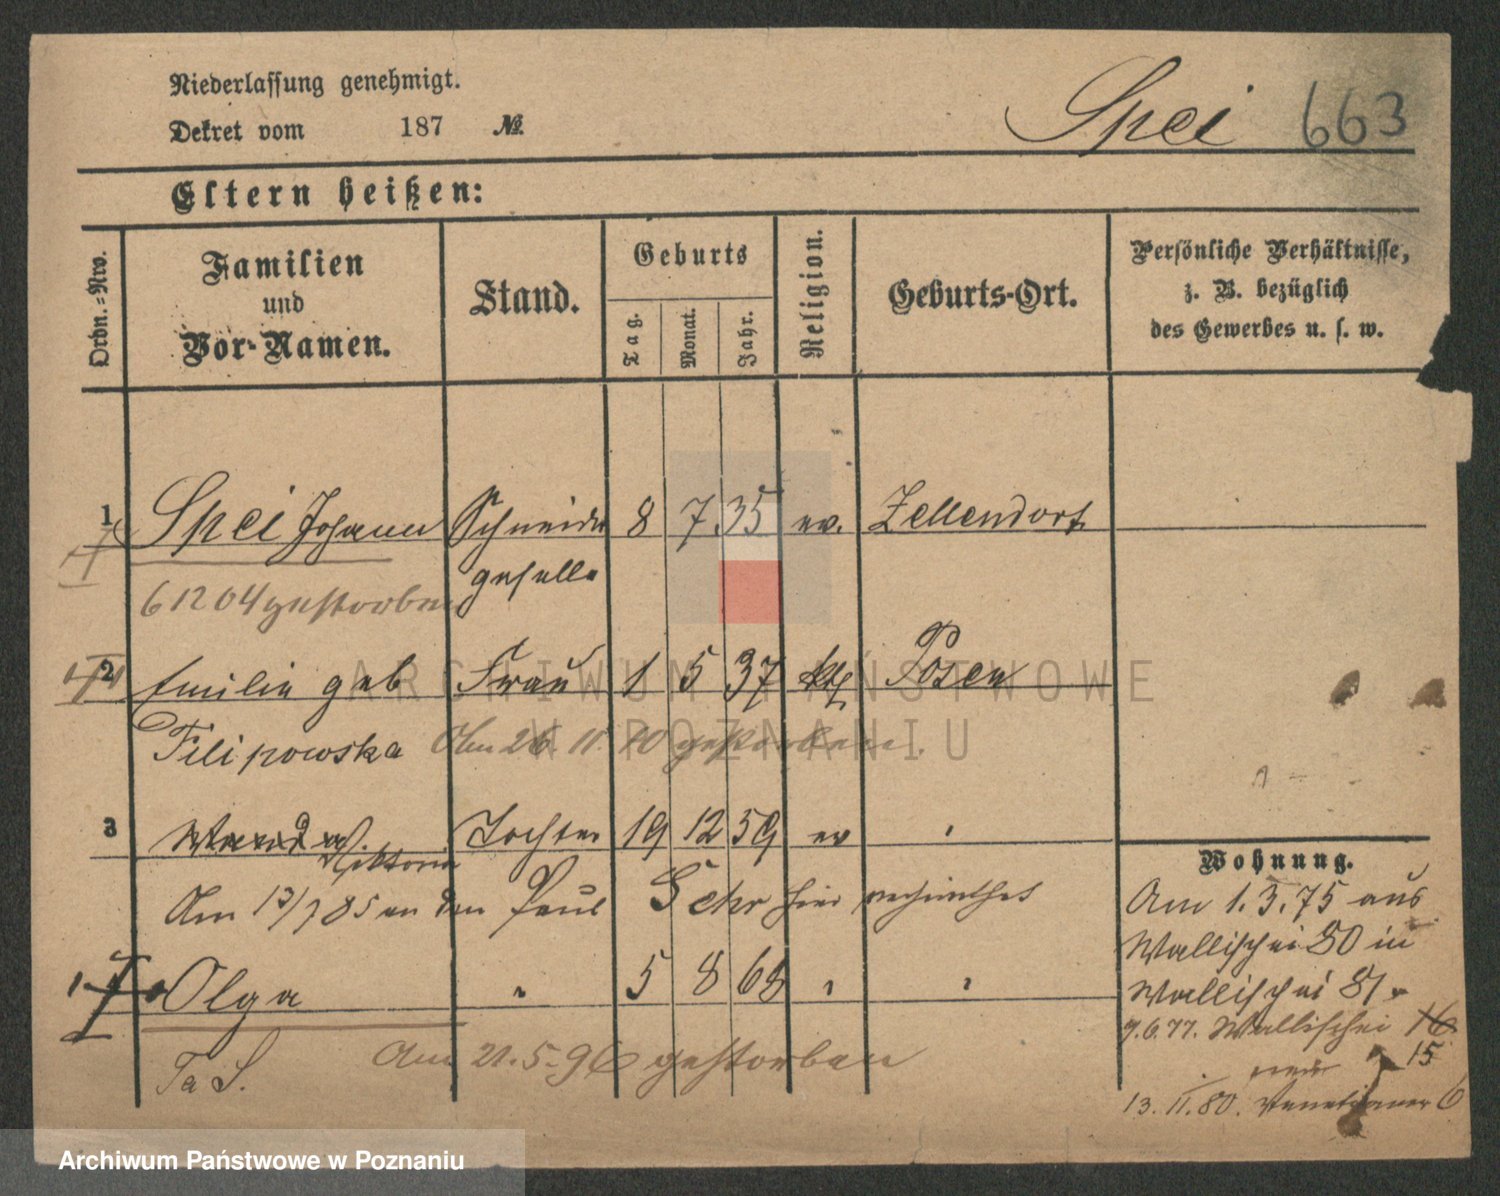 Niederlassung genehmigt.
Dekret vom 187 №.
Spei 663
Eltern heißen:
Ordn.-Nro.
Familien und Vor-Namen.
Stand.
Geburts
Tag. Monat. Jahr.
Religion.
Geburts-Ort.
Persönliche Verhältnisse,
z. B. bezüglich
des Gewerbes u. s. w.
1 Spei Johann Schneider 8 7 35 ev. Zellendorf
geselle
6 12 04 gestorben
2 Emilie geb Frau 1 5 37 kth Posen
Filipowska Am 26. 11. 10 gestorben.
3 Wanda Tochter 19 12 59 ev "
Viktoria
Am 13/7 85 an den Paul hier verheirathet
Olga " 5 8 68 " "
Am 21.5.96 gestorben
Wohnung.
Am 1.3.75 aus
Wallischei 80 in
Wallischei 81
9.6.77. Wallischei 16
neu 15
13. 11. 80. Venetianer 6
ARCHIWUM PAŃSTWOWE
W POZNANIU
Archiwum Państwowe w Poznaniu